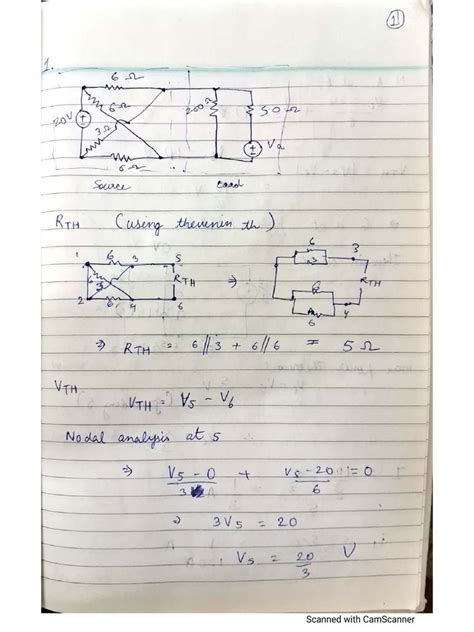 1
1.
6 Ω
6 Ω
20V
3 Ω
200 Ω
50 Ω
Va
6 Ω
Source
Load
RTH (using thevenin th)
1 6 3 5
RTH
2 6 4 6
⇒
6 3
3
RTH
6
6 4
⇒ RTH = 6//3 + 6//6 = 5 Ω
VTH
VTH = V5 - V6
Nodal analysis at 5
⇒ V5 - 0 / 3 + V5 - 20 / 6 = 0
⇒ 3V5 = 20
∴ V5 = 20/3 V
Scanned with CamScanner